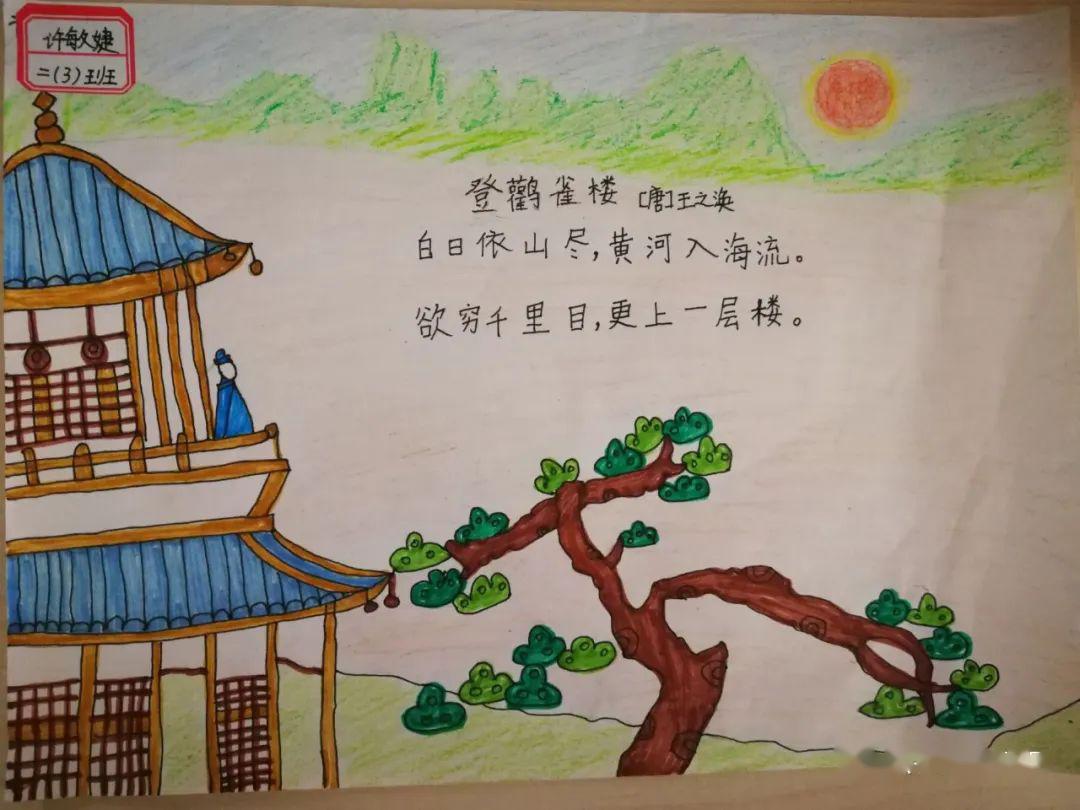 许敏婕
二(3)班
登鸛雀楼 [唐]王之涣
白日依山尽,黄河入海流。
欲穷千里目,更上一层楼。